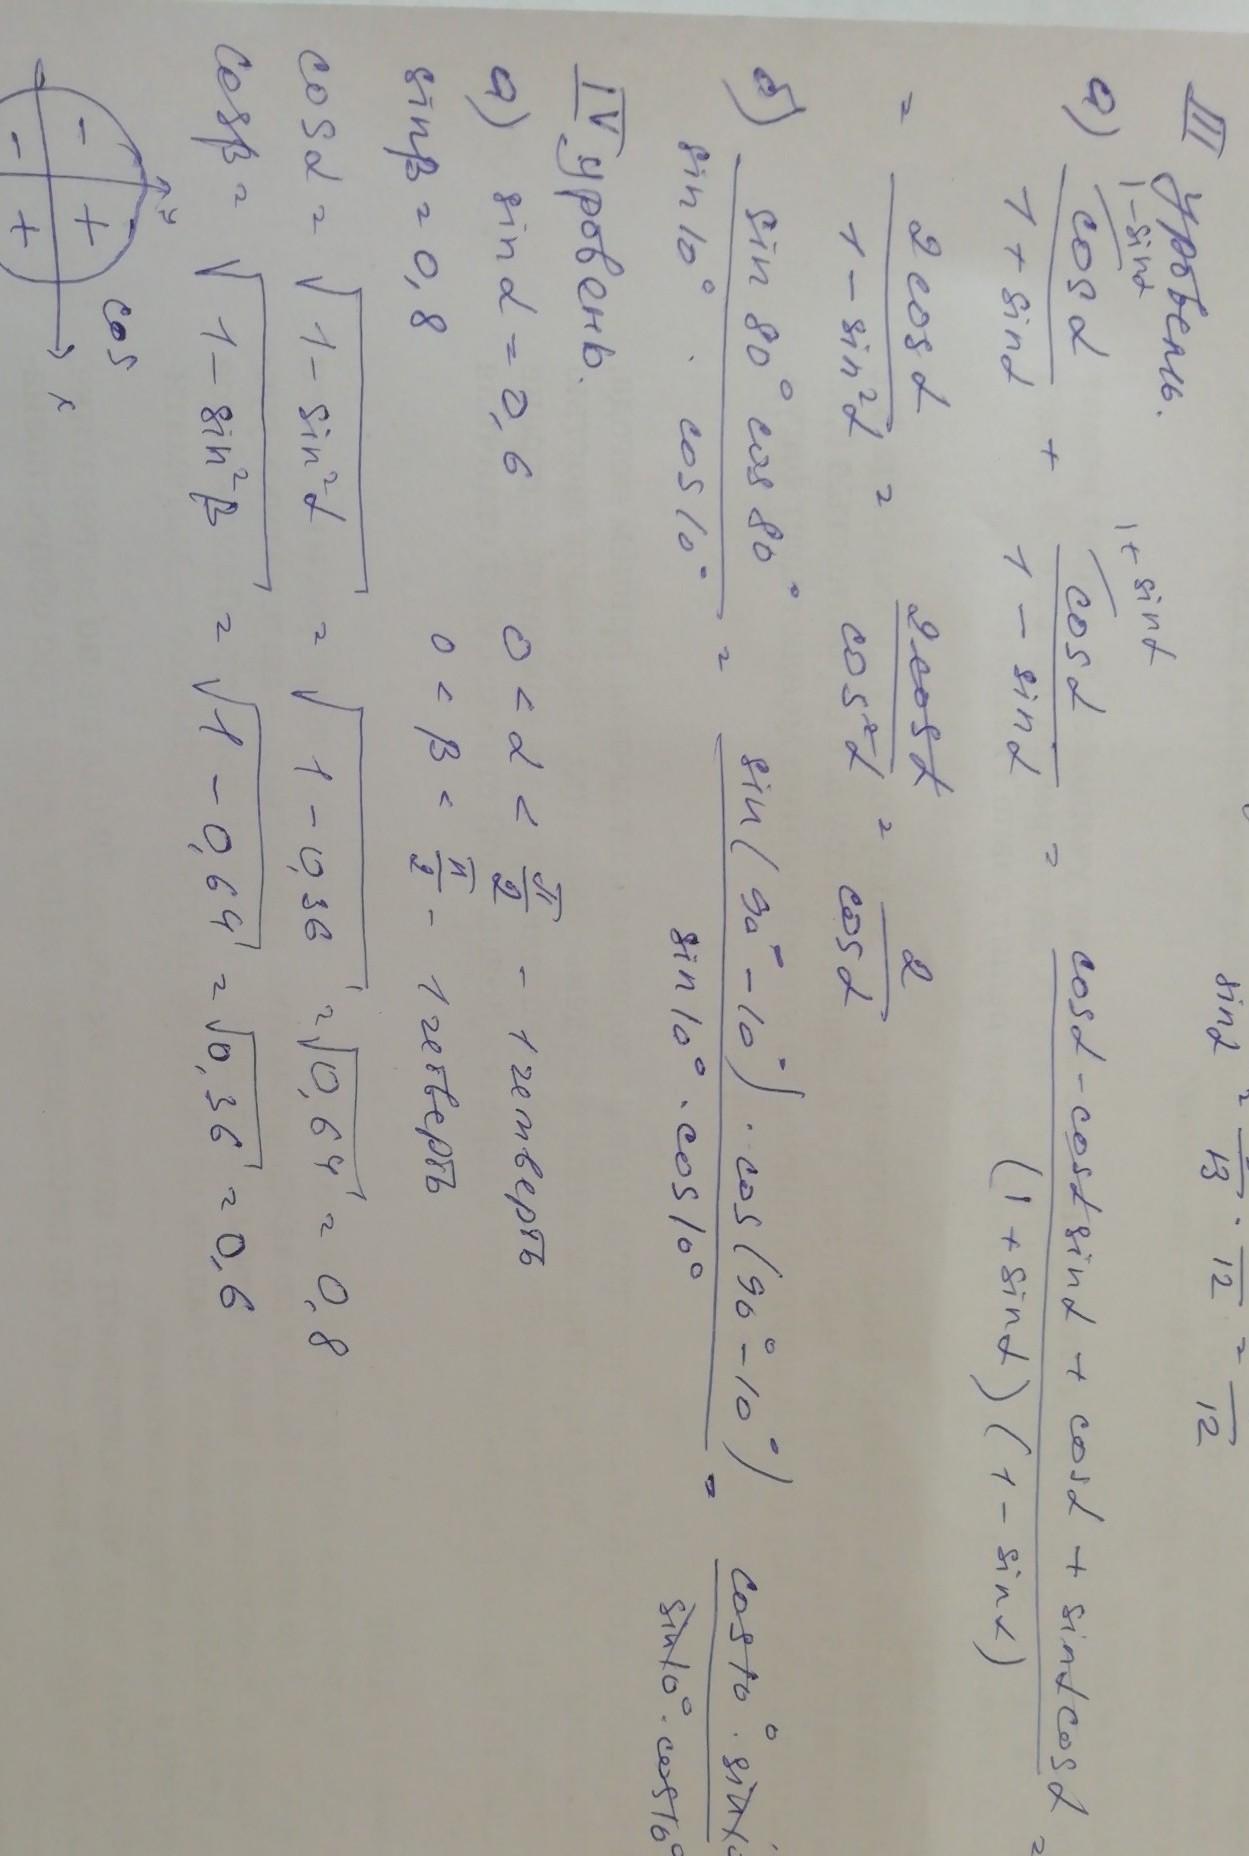 sin α = —/13 · —/12 = —/12
III уровень.
а) cosα/(1 + sinα) + cosα/(1 − sinα) = (cosα − cosα sinα + cosα + sinα cosα)/((1 + sinα)(1 − sinα)) =
1 − sinα
1 + sinα
= 2cosα/(1 − sin²α) = 2cosα/cos²α = 2/cosα
б) (sin 80° cos 80°)/(sin 10° · cos 10°) = (sin(90° − 10°) · cos(90° − 10°))/(sin 10° · cos 10°) = (cos 10° · sin)/(sin 10° · cos 10°)
IV уровень.
а) sin α = 0,6 0 < α < π/2 − 1 четверть
sin β = 0,8 0 < β < π/2 − 1 четверть
cos α = √(1 − sin²α) = √(1 − 0,36) = √0,64 = 0,8
cos β = √(1 − sin²β) = √(1 − 0,64) = √0,36 = 0,6
y
cos
− +
x
− +